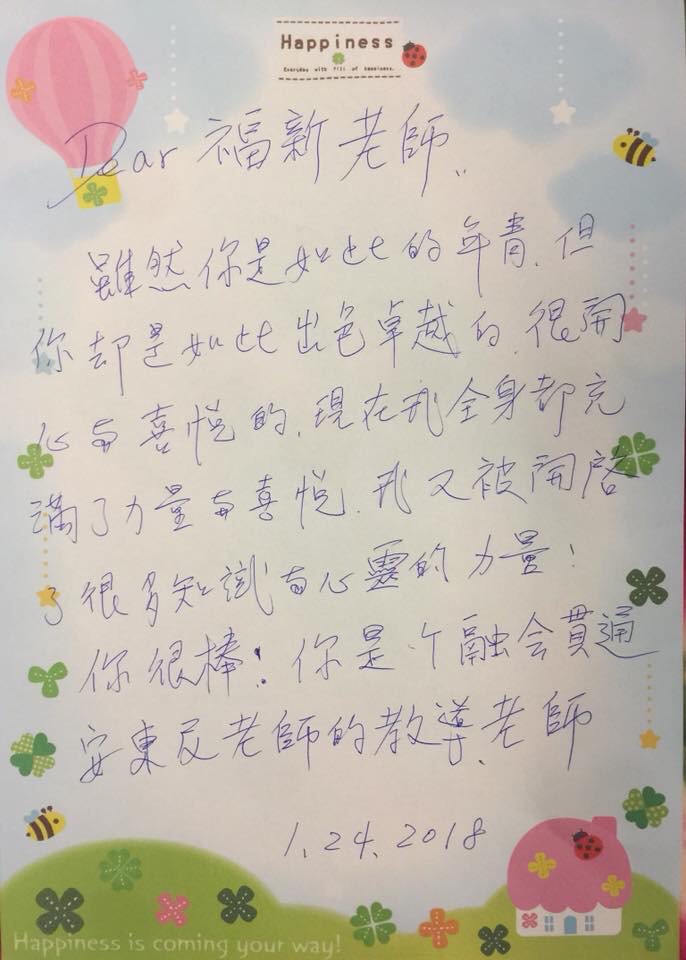 Happiness
Everyday with fill of happiness.
Dear 福新老師..
雖然你是如此的年青、但
你却是如此出色卓越的、很開
心与喜悅的、現在我全身都充
滿了力量与喜悅、我又被開啓
了很多知識与心靈的力量!
你很棒! 你是个融会貫通
安東尼老師的教導、老師
1.24.2018
Happiness is coming your way!